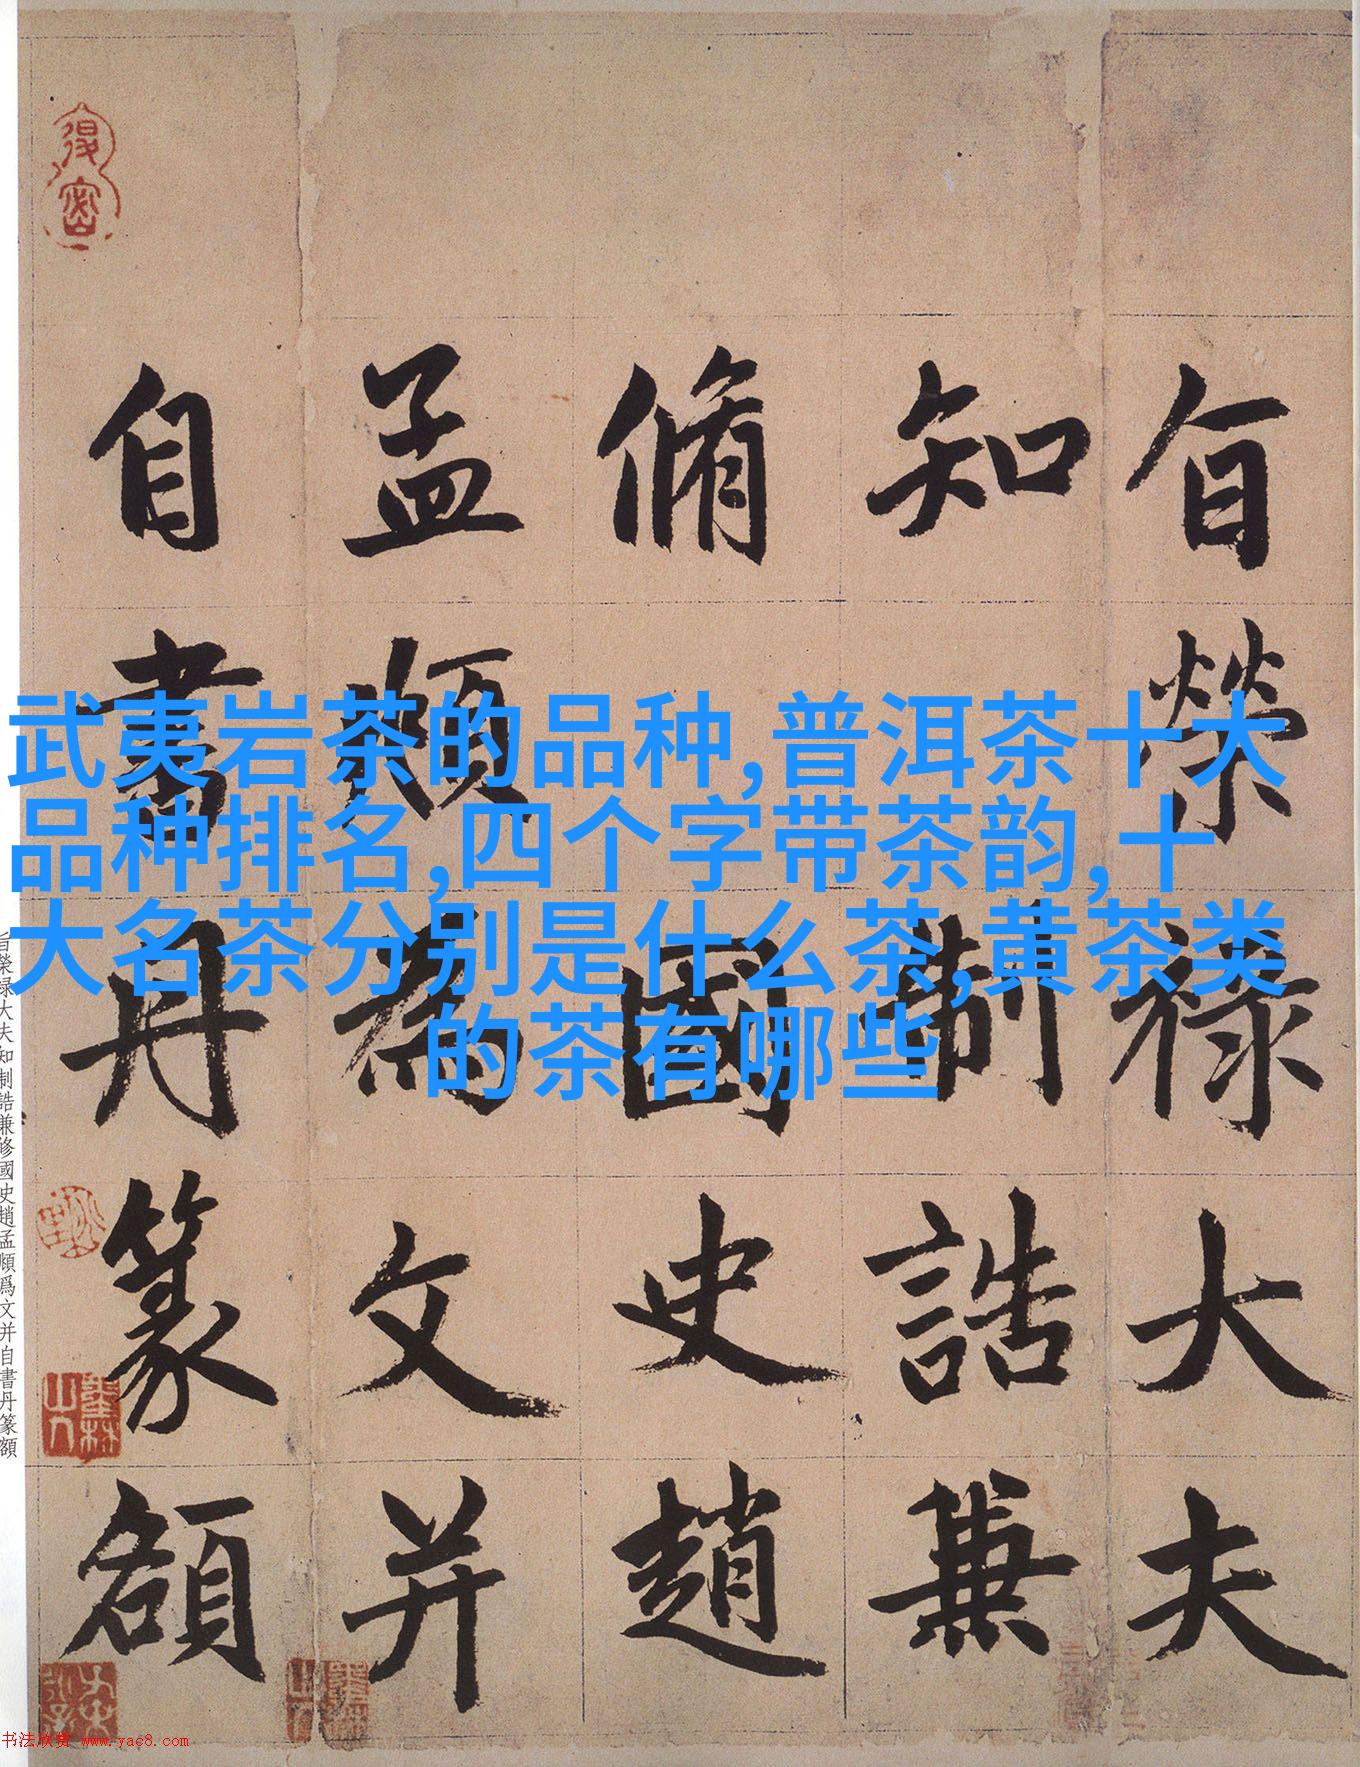 武夷岩茶的品种,普洱茶十大
品种排名,四个字带茶韵,十
大名茶分别是什么茶,黄茶类
的茶有哪些
旨榮禄大夫
知制誥兼
脩國史趙
孟頫為文并
自書丹篆額
旨榮禄大夫知制誥兼修國史趙孟頫爲文并自書丹篆額
书法欣赏 www.yac8.com